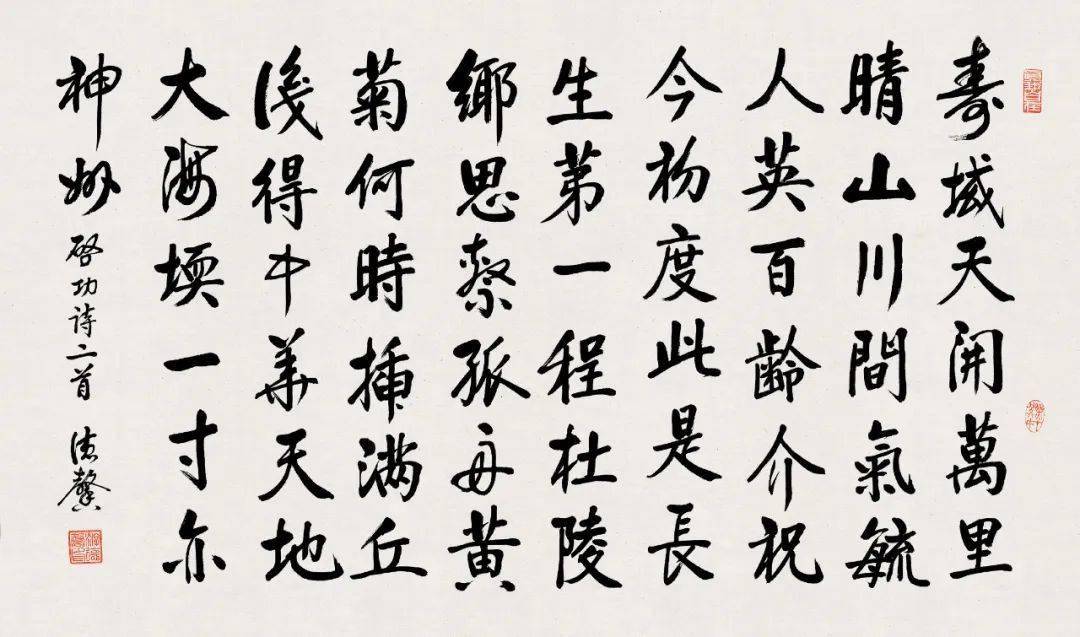 壽域天開萬里
晴山川間氣毓
人英百齡介祝
今初度此是長
生第一程杜陵
鄉思繫孤舟黃
菊何時插滿丘
得中華天地
大海堧一寸亦
神州 啓功詩二首 德馨